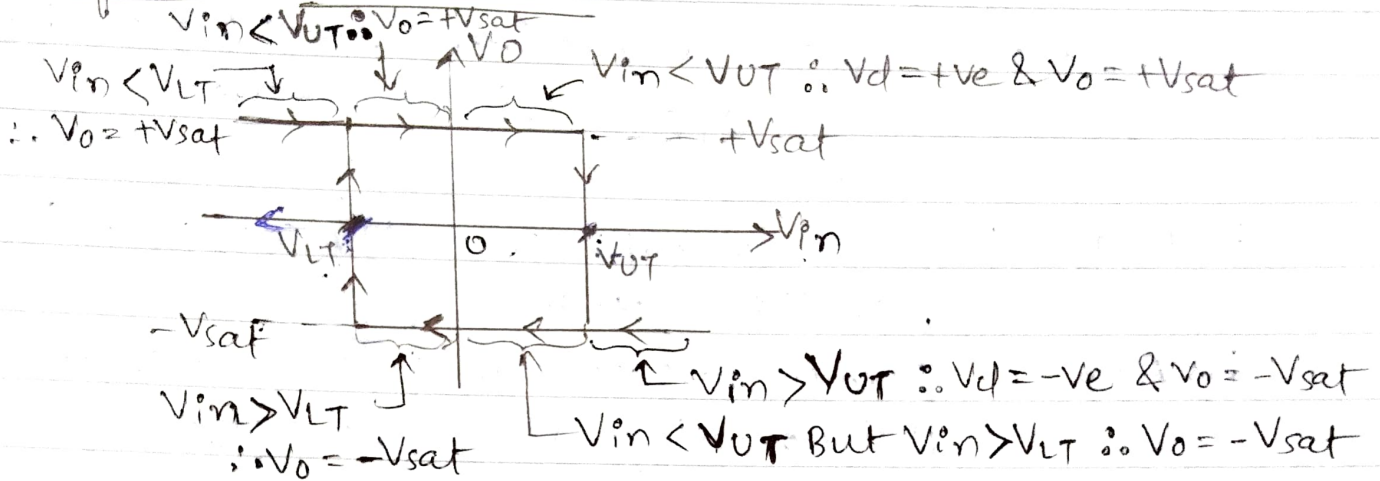 Vin < VUT ∴ Vo = +Vsat
VO
Vin < VLT
∴ Vo = +Vsat
Vin < VUT ∴ Vd = +ve & Vo = +Vsat
+Vsat
VLT
O
VUT
Vin
-Vsat
Vin > VLT
∴ Vo = -Vsat
Vin > VUT ∴ Vd = -ve & Vo = -Vsat
Vin < VUT But Vin > VLT ∴ Vo = -Vsat